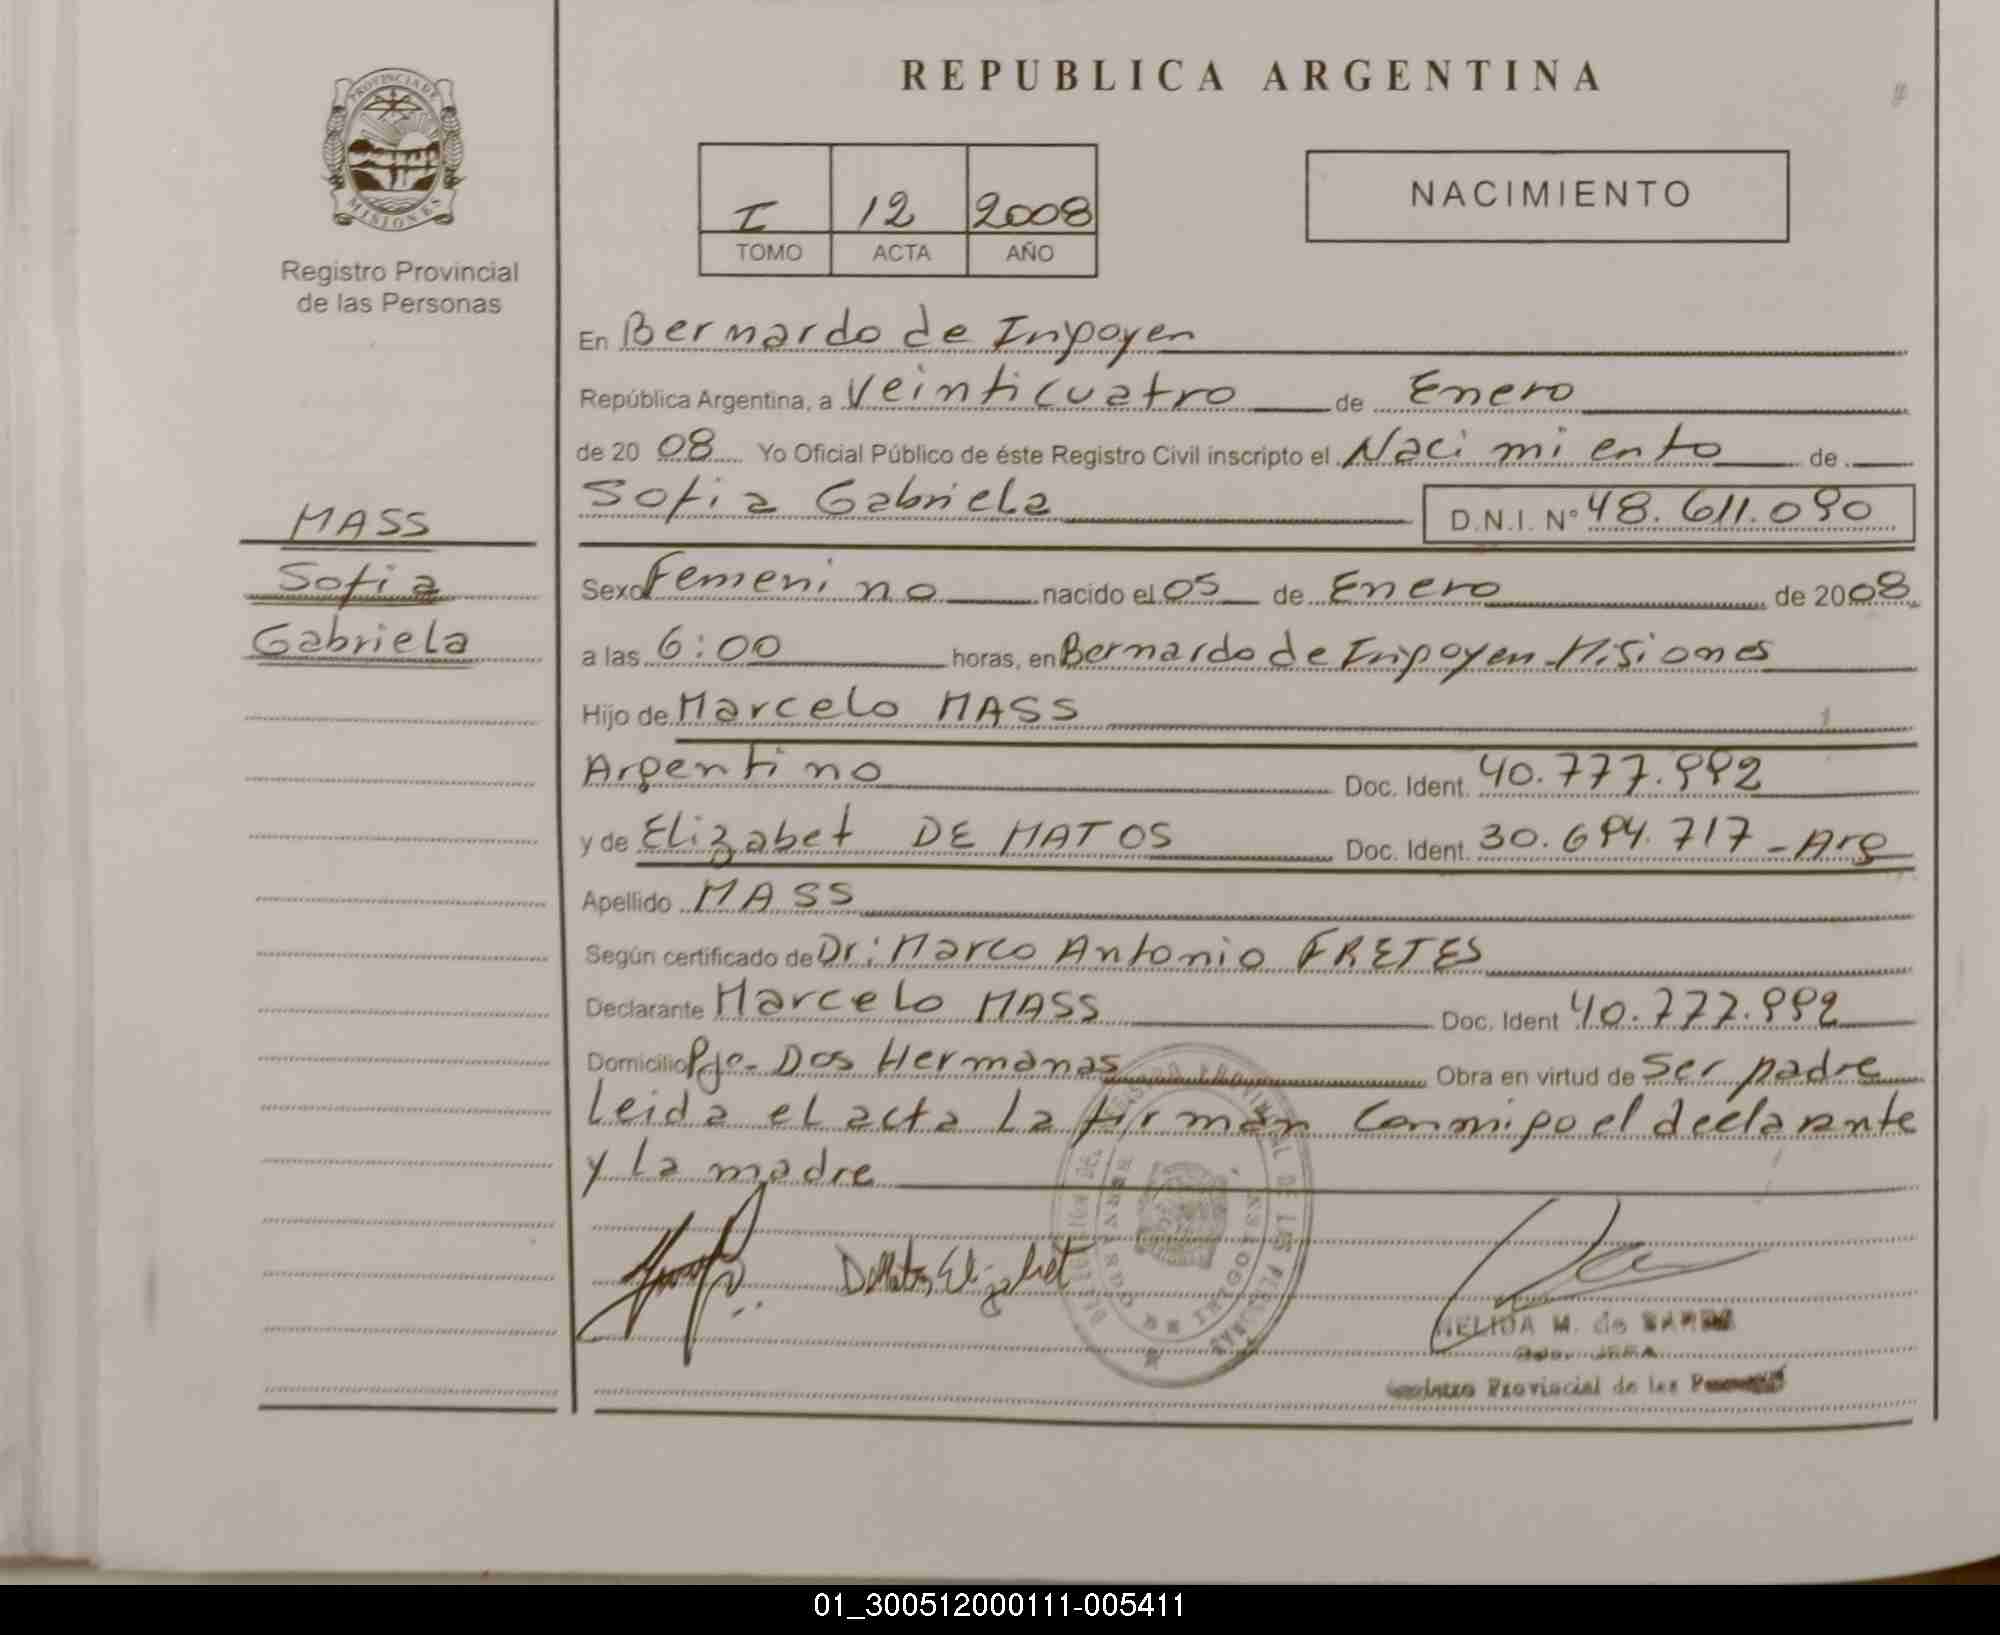 REPUBLICA ARGENTINA
PROVINCIA DE
MISIONES
Registro Provincial
de las Personas
I 12 2008
TOMO ACTA AÑO
NACIMIENTO
En Bernardo de Irigoyen
República Argentina, a Veinticuatro de Enero
de 20 08 Yo Oficial Público de éste Registro Civil inscripto el Nacimiento de
Sofia Gabriela D.N.I. Nº 48.611.090
MASS
Sofia
Gabriela
Sexo Femenino nacido el 05 de Enero de 2008
a las 6:00 horas, en Bernardo de Irigoyen-Misiones
Hijo de Marcelo MASS
Argentino Doc. Ident. 40.777.992
y de Elizabet DE MATOS Doc. Ident. 30.694.717 - Arg
Apellido MASS
Según certificado de Dr: Marco Antonio FRETES
Declarante Marcelo MASS Doc. Ident 40.777.992
Domicilio Pje- Dos Hermanas Obra en virtud de Ser padre
Leida el acta la firman Conmigo el declarante
y la madre
Elizabet
NELIDA M. de
JEFA
Provincial de las
01_300512000111-005411